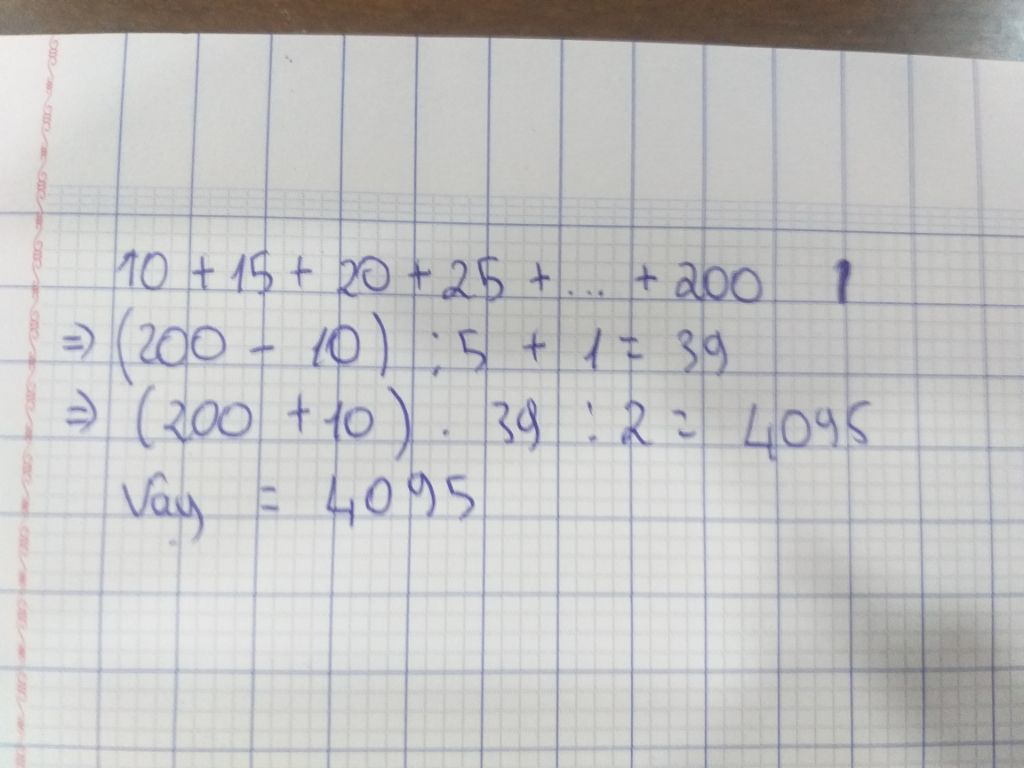 10 + 15 + 20 + 25 + ... + 200
⇒ (200 - 10) : 5 + 1 = 39
⇒ (200 + 10) . 39 : 2 = 4095
Vậy = 4095